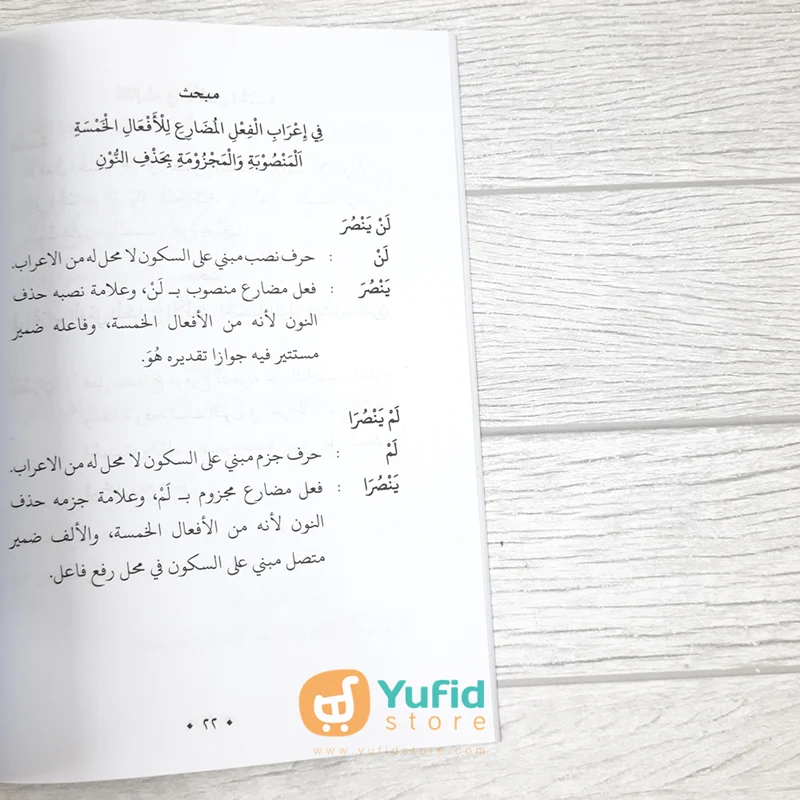 مبحث
فِي إِعْرَابِ الْفِعْلِ الْمُضَارِعِ لِلْأَفْعَالِ الْخَمْسَةِ
اَلْمَنْصُوْبَةِ وَالْمَجْزُوْمَةِ بِحَذْفِ النُّوْنِ
لَنْ يَنْصُرَ
لَنْ : حرف نصب مبني على السكون لا محل له من الاعراب.
يَنْصُرَ : فعل مضارع منصوب بـ لَنْ، وعلامة نصبه حذف
النون لأنه من الأفعال الخمسة، وفاعله ضمير
مستتير فيه جوازا تقديره هُوَ.
لَمْ يَنْصُرَا
لَمْ : حرف جزم مبني على السكون لا محل له من الاعراب.
يَنْصُرَا : فعل مضارع مجزوم بـ لَمْ، وعلامة جزمه حذف
النون لأنه من الأفعال الخمسة، والألف ضمير
متصل مبني على السكون في محل رفع فاعل.
Yufid
store
www.yufidstore.com
• ٢٢ •